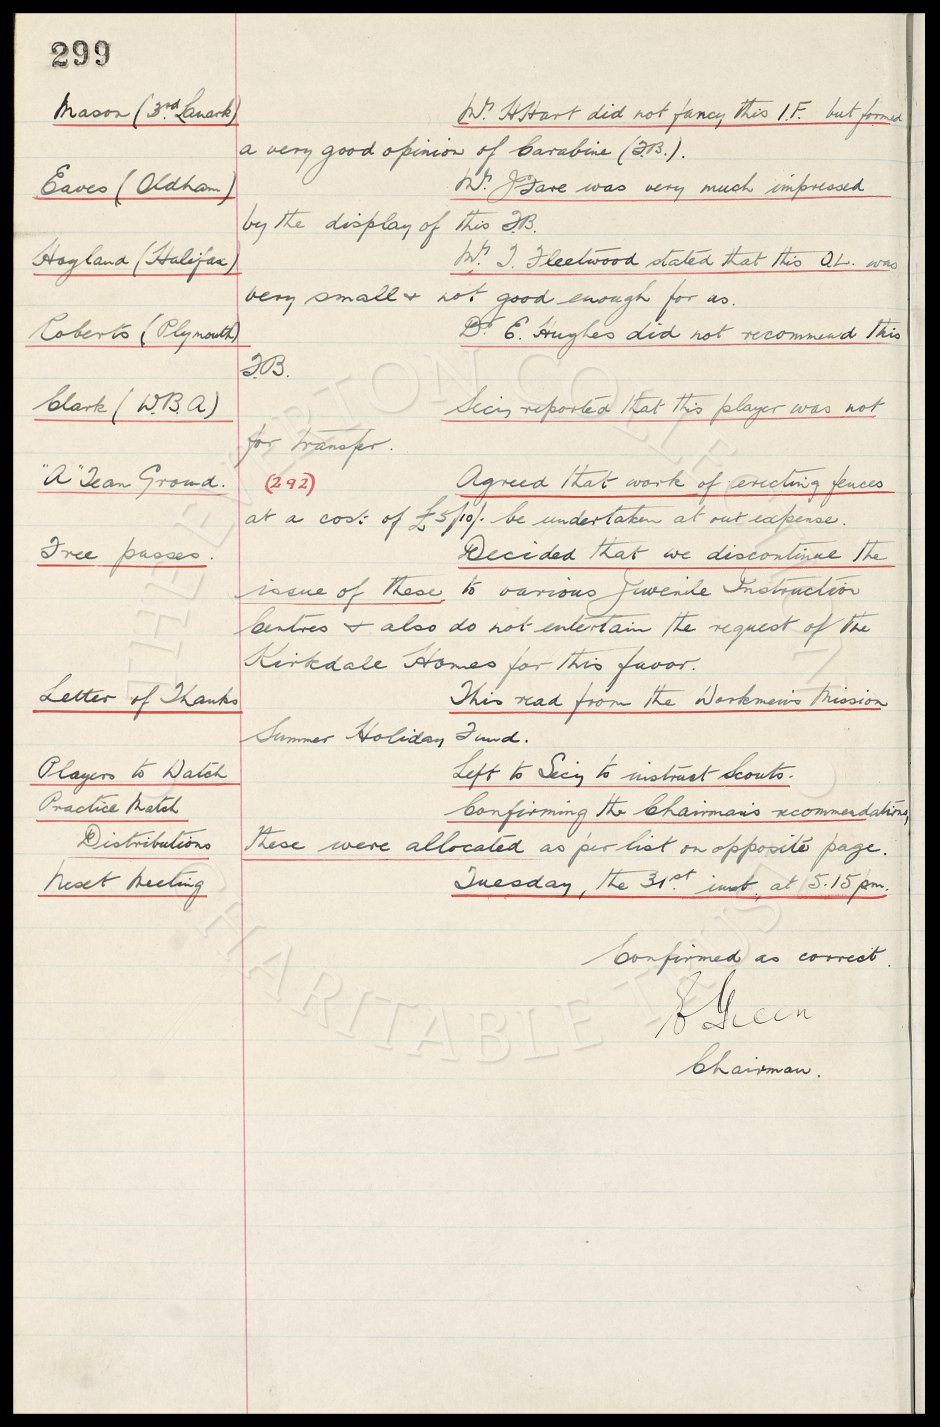 299
Mason (3rd Lanark) Mr. H Hart did not fancy this I.F. but formed
a very good opinion of Carabine (F.B.).
Eaves (Oldham) Mr. J Fare was very much impressed
by the display of this F.B.
Hoyland (Halifax) Mr. T. Fleetwood stated that this O.L. was
very small & not good enough for us.
Roberts (Plymouth) Dr. E. Hughes did not recommend this
F.B.
Clark (W.B.A) Secy reported that this player was not
for transfer.
"A" Team Ground. (292) Agreed that work of erecting fences
at a cost of £5/10/- be undertaken at our expense.
Free passes. Decided that we discontinue the
issue of these, to various Juvenile Instruction
Centres & also do not entertain the request of the
Kirkdale Homes for this favor.
Letter of Thanks This read from the Workmen's Mission
Summer Holiday Fund.
Players to Watch Left to Secy to instruct Scouts.
Practice Match Confirming the Chairman's recommendations,
Distributions these were allocated as per list on opposite page.
Next Meeting Tuesday, the 31st. inst, at 5.15pm.
Confirmed as correct.
Green
Chairman.
THE EVERTON COLLECTION
CHARITABLE TRUST